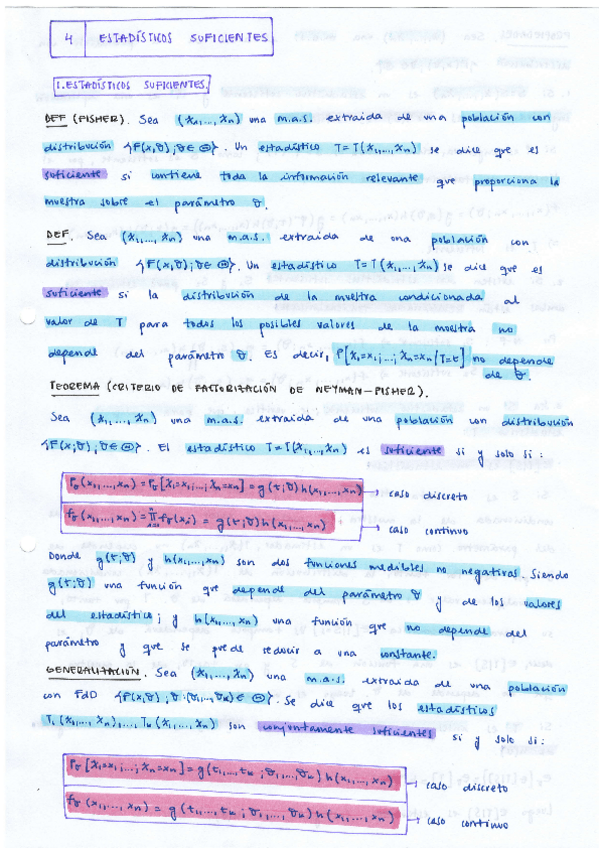 4 ESTADÍSTICOS SUFICIENTES
1. ESTADÍSTICOS SUFICIENTES.
DEF (FISHER). Sea (X₁,...,Xₙ) una m.a.s. extraida de una población con
distribución {F(x,θ); θ ∈ Θ}. Un estadístico T=T(X₁,...,Xₙ) se dice que es
suficiente si contiene toda la información relevante que proporciona la
muestra sobre el parámetro θ.
DEF. Sea (X₁,...,Xₙ) una m.a.s. extraida de una población con
distribución {F(x,θ); θ ∈ Θ}. Un estadístico T=T(X₁,...,Xₙ) se dice que es
suficiente si la distribución de la muestra condicionada al
valor de T para todos los posibles valores de la muestra no
depende del parámetro θ. Es decir, P[X₁=x₁;...;Xₙ=xₙ/T=t] no depende
de θ.
TEOREMA (CRITERIO DE FACTORIZACIÓN DE NEYMAN-FISHER).
Sea (X₁,...,Xₙ) una m.a.s. extraida de una población con distribución
{F(x;θ); θ ∈ Θ}. El estadístico T=T(X₁,...,Xₙ) es suficiente si y solo si:
Pθ(x₁,...,xₙ) = Pθ[X₁=x₁;...;Xₙ=xₙ] = g(t;θ)h(x₁,...,xₙ) → caso discreto
fθ(x₁,...,xₙ) = ∏ fθ(xᵢ) = g(t;θ)h(x₁,...,xₙ) → caso continuo
Donde g(t;θ) y h(x₁,...,xₙ) son dos funciones medibles no negativas. Siendo
g(t;θ) una función que depende del parámetro θ y de los valores
del estadístico; y h(x₁,...,xₙ) una función que no depende del
parámetro y que se puede reducir a una constante.
GENERALIZACIÓN. Sea (X₁,...,Xₙ) una m.a.s. extraida de una población
con FdD {F(x,θ); θ=(θ₁,...,θₖ) ∈ Θ}. Se dice que los estadísticos
T₁(X₁,...,Xₙ),...,Tₖ(X₁,...,Xₙ) son conjuntamente suficientes si y solo si:
Pθ[X₁=x₁;...;Xₙ=xₙ] = g(t₁,...,tₖ;θ₁,...,θₖ)h(x₁,...,xₙ) → caso discreto
fθ(x₁,...,xₙ) = g(t₁,...,tₖ;θ₁,...,θₖ)h(x₁,...,xₙ) → caso continuo